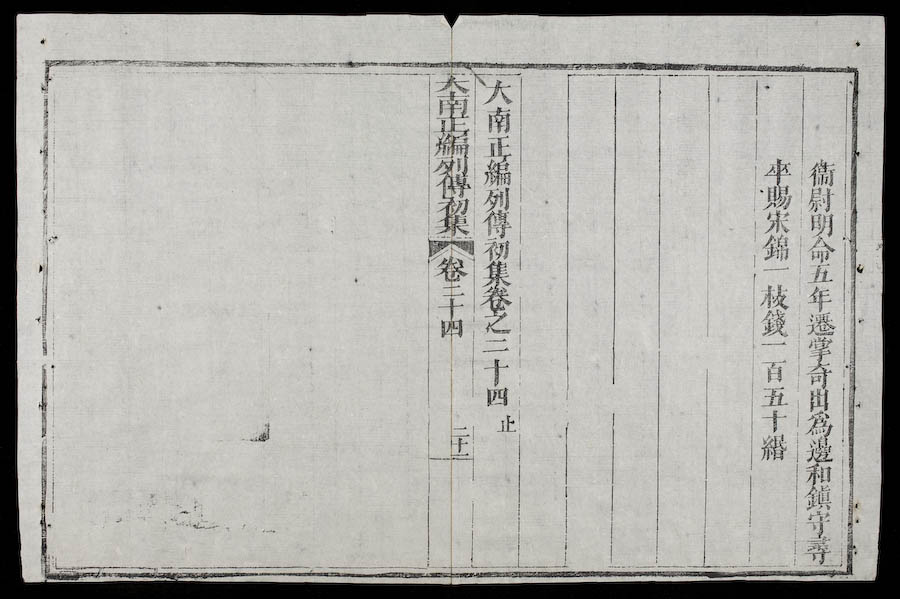 衞尉明命五年遷掌奇出爲邊和鎭守尋
卒賜宋錦一枝錢一百五十緡
大南正編列傳初集卷之二十四 止
大南正編列傳初集 卷二十四 二十一